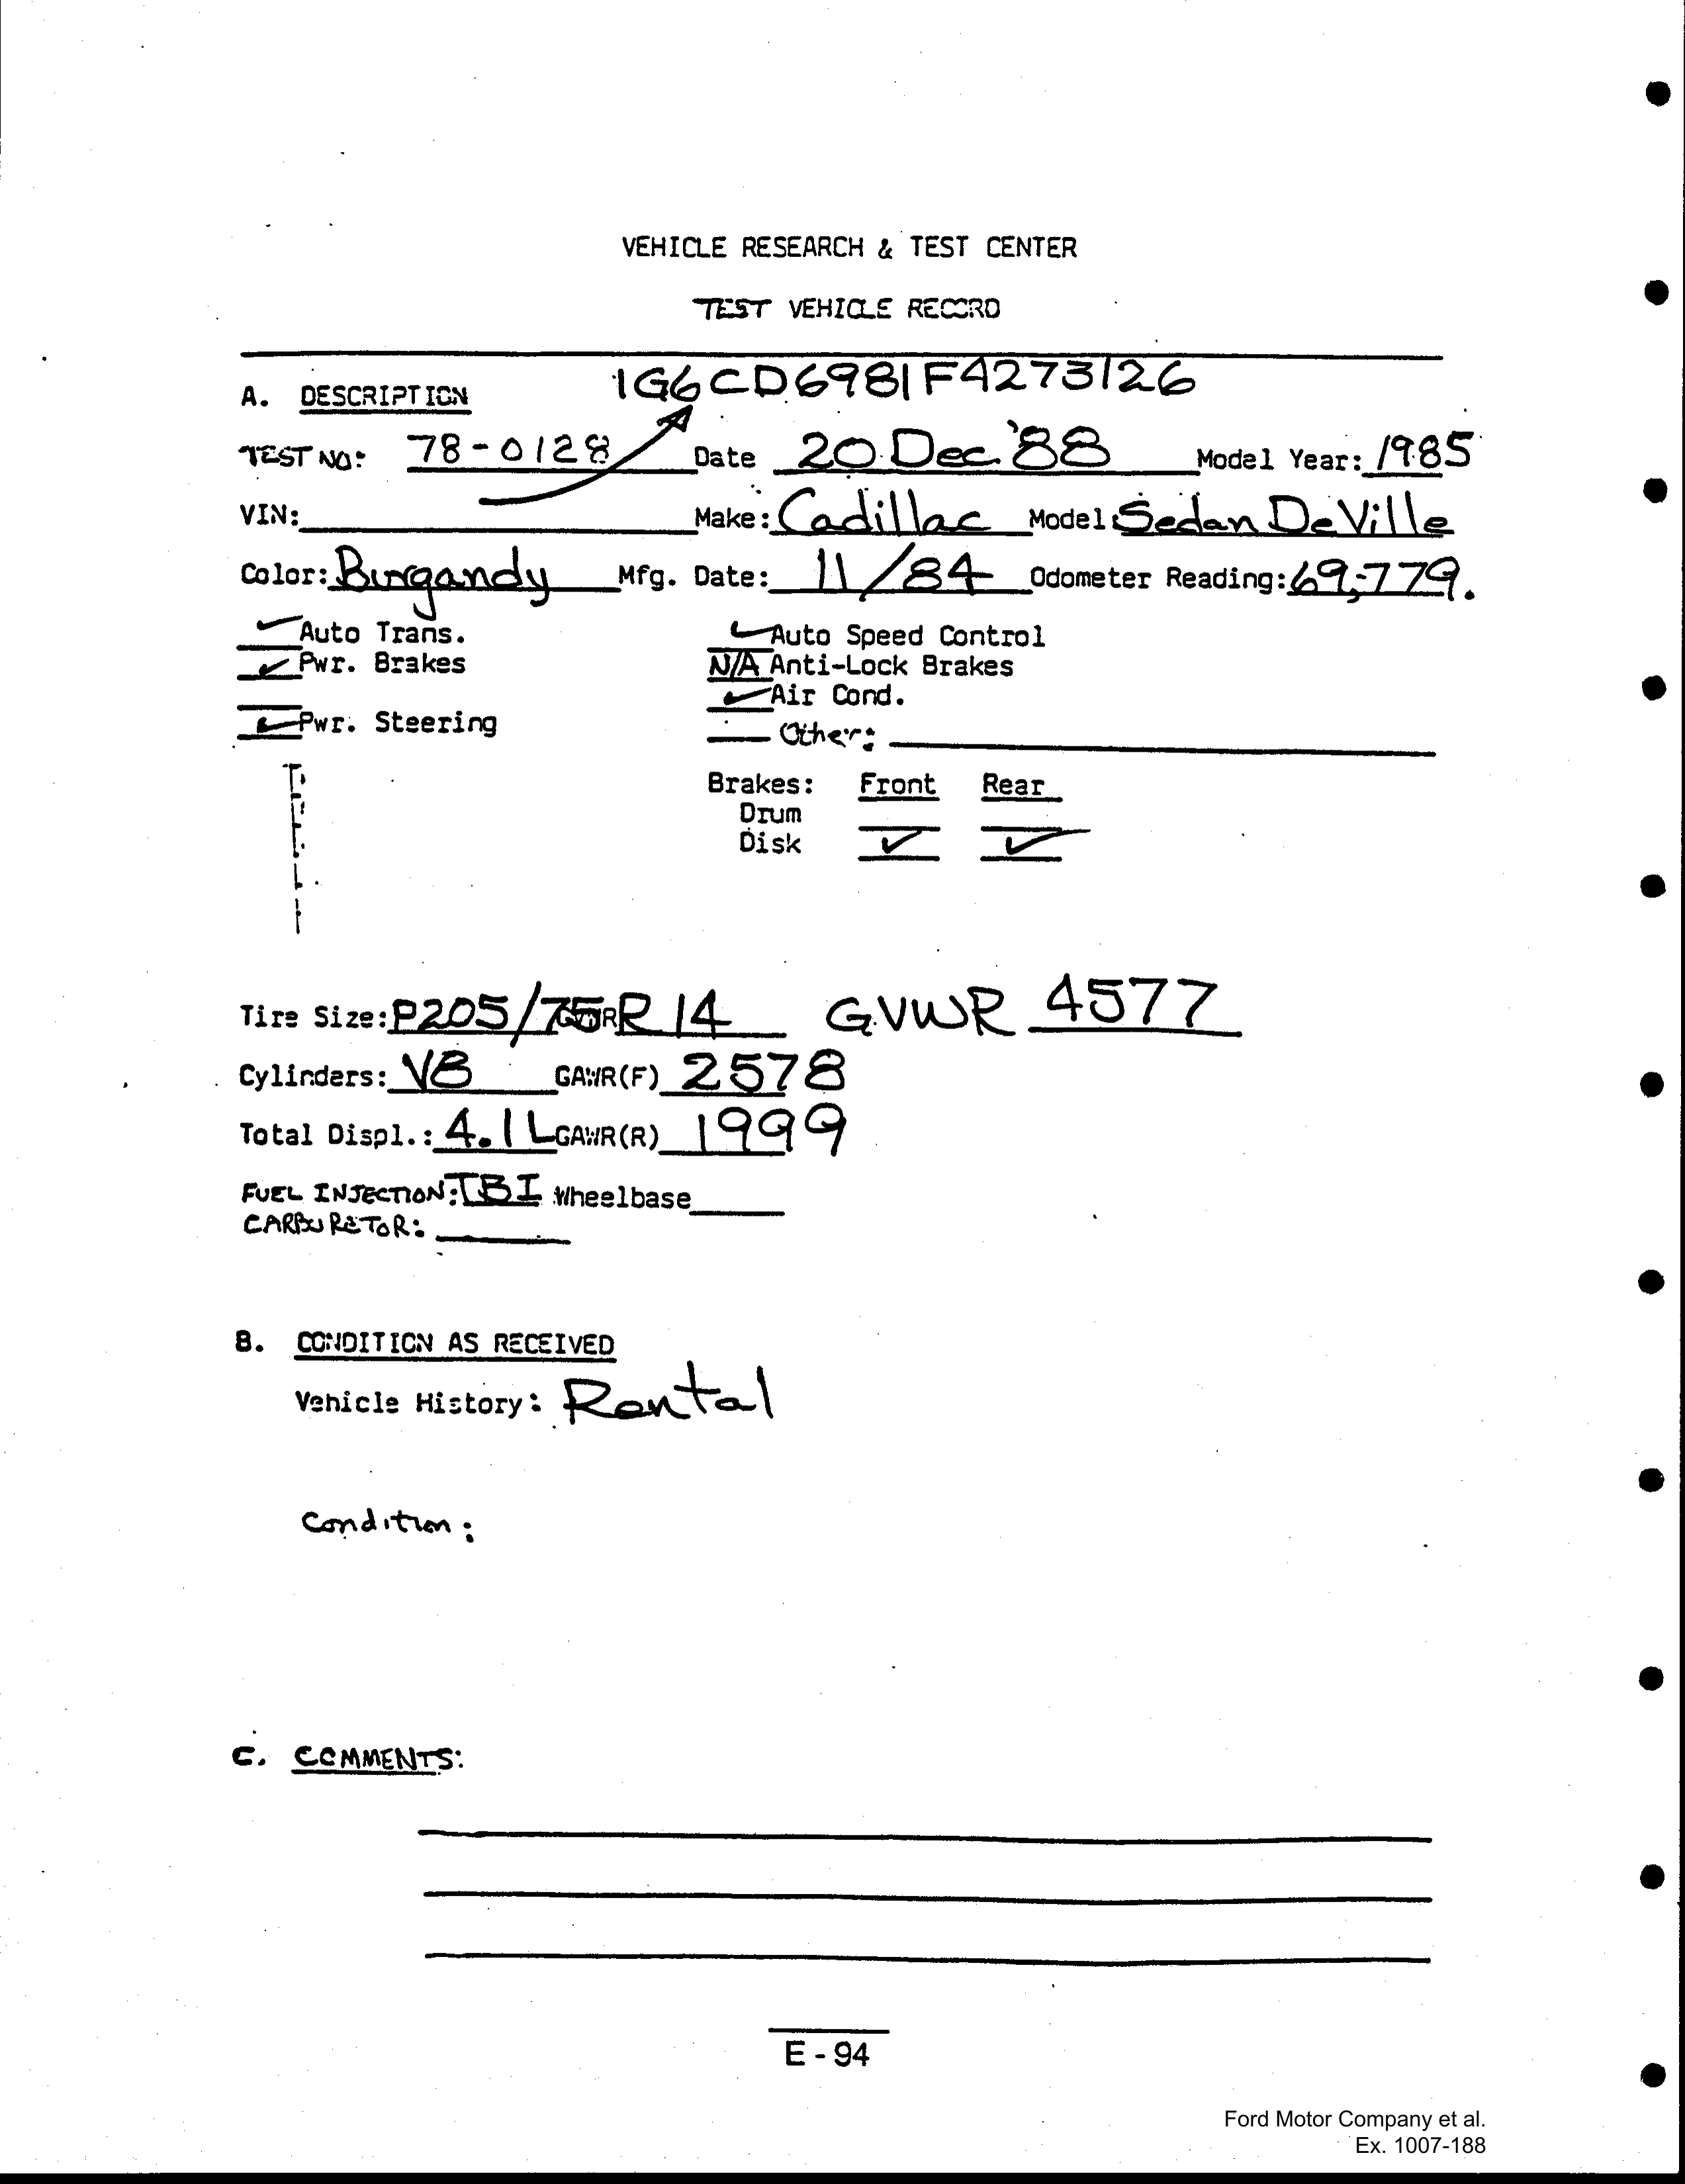 VEHICLE RESEARCH & TEST CENTER
TEST VEHICLE RECORD
1G6CD6981F4273126
A. DESCRIPTION
TEST NO: 78-0128 Date 20 Dec '88 Model Year: 1985
VIN: Make: Cadillac Model: Sedan DeVille
Color: Burgandy Mfg. Date: 11/84 Odometer Reading: 69,779.
Auto Trans. Auto Speed Control
Pwr. Brakes N/A Anti-Lock Brakes
Air Cond.
Pwr. Steering
Other:
Brakes: Front Rear
Drum
Disk ✓ ✓
Tire Size: P205/75R14 GVWR 4577
Cylinders: V8 GAWR(F) 2578
Total Displ.: 4.1L GAWR(R) 1999
FUEL INJECTION: TBI Wheelbase
CARBURETOR:
B. CONDITION AS RECEIVED
Vehicle History: Rental
Condition:
C. COMMENTS:
E - 94
Ford Motor Company et al.
Ex. 1007-188